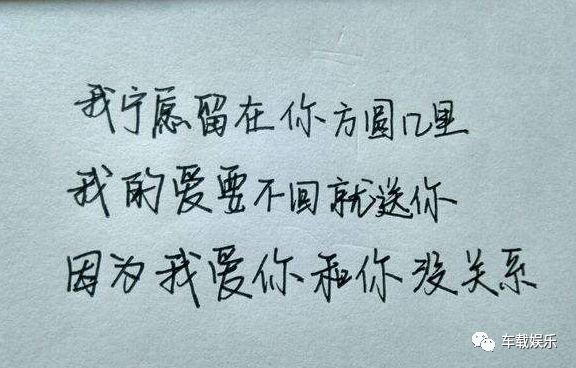 我宁愿留在你方圆几里
我的爱要不回就送你
因为我爱你和你没关系
车载娱乐